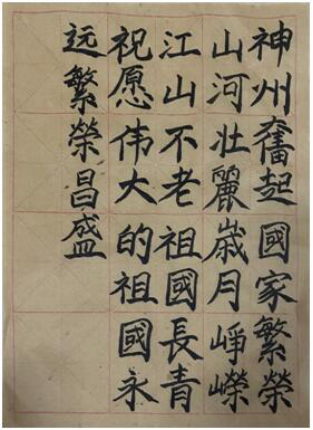 神州奮起國家繁榮
山河壯麗歲月崢嶸
江山不老祖國長青
祝愿伟大的祖國永
远繁榮昌盛